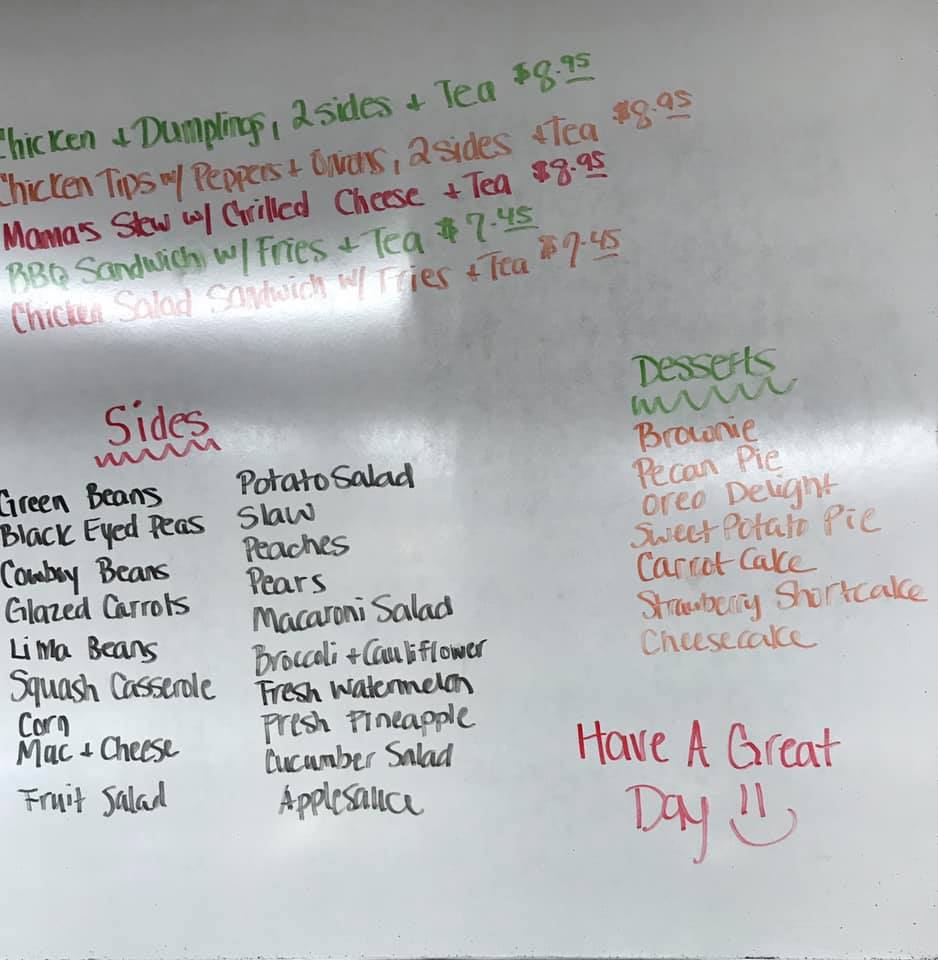 Chicken + Dumplings, 2 sides + Tea $8.95
Chicken Tips w/ Peppers + Onions, 2 sides + Tea $8.95
Mama's Stew w/ Grilled Cheese + Tea $8.95
BBQ Sandwich w/ Fries + Tea $7.45
Chicken Salad Sandwich w/ Fries + Tea $7.45
Sides
Green Beans
Black Eyed Peas
Cowboy Beans
Glazed Carrots
Lima Beans
Squash Casserole
Corn
Mac + Cheese
Fruit Salad
Potato Salad
Slaw
Peaches
Pears
Macaroni Salad
Broccoli + Cauliflower
Fresh Watermelon
Fresh Pineapple
Cucumber Salad
Applesauce
Desserts
Brownie
Pecan Pie
Oreo Delight
Sweet Potato Pie
Carrot Cake
Strawberry Shortcake
Cheesecake
Have A Great
Day !!